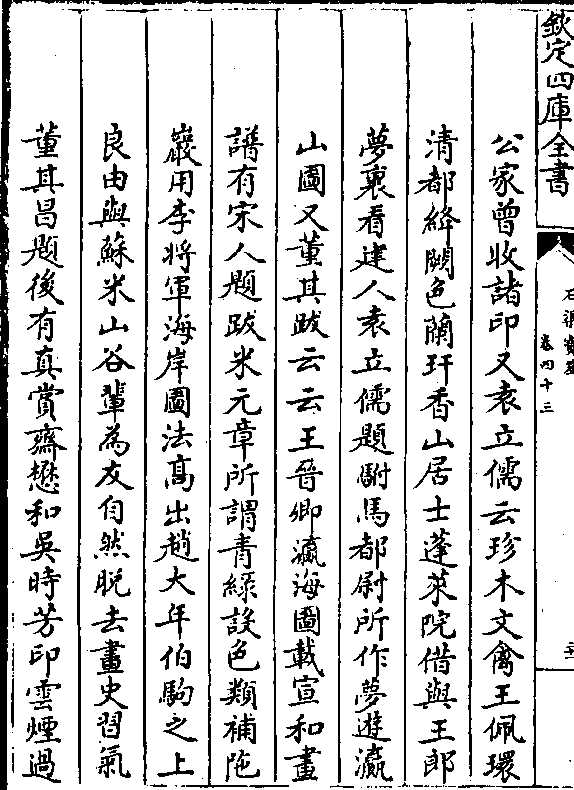 欽定四庫全書
石渠寶笈
卷四十三
公家曾收諸印又袁立儒云珍木文禽王佩環
清都絳闕色蘭玕香山居士蓬萊院借與王郎
夢裏看建人袁立儒題駙馬都尉所作夢遊瀛
山圖又董其跋云云王晉卿瀛海圖載宣和畫
譜有宋人題跋米元章所謂青綠設色類補陁
巖用李將軍海岸圖法髙出趙大年伯駒之上
良由與蘇米山谷輩為友自然脱去畫史習氣
董其昌題後有真賞齋懋和吳時芳印雲煙過